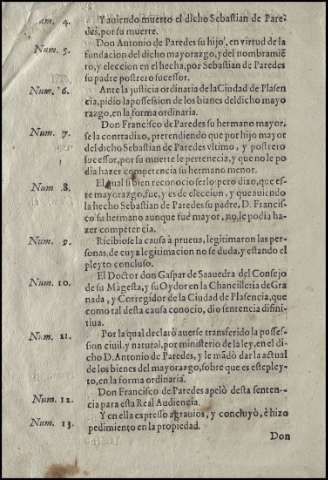 um. 4. Y auiendo muerto el dicho Sebastian de Pare-
des, por su muerte.
Num. 5. Don Antonio de Paredes su hijo, en virtud de la
fundacion del dicho mayorazgo, y del nombramiē-
to, y eleccion en el hecha, por Sebastian de Paredes
su padre postrero sucessor.
Num. 6. Ante la justicia ordinaria de la Ciudad de Plasen-
cia, pidio la possession de los bianes del dicho mayo
razgo, en la forma ordinaria.
Num. 7. Don Francisco de Paredes su hermano mayor,
se la contradixo, pretendiendo que por hijo mayor
del dicho Sebastian de Paredes vltimo, y postrero
sucessor, por su muerte le pertenecia, y que no le po
dia hazer competencia su hermano menor.
Num. 8. El qual si bien reconocio serlo pero dixo, que es-
te mayorazgo, fue, y es de eleccion, y que auiendo
la hecho Sebastian de Paredes su padre, D. Francis-
co su hermano aunque fue mayor, no le podia ha-
zer competencia.
Num. 9. Recibiose la causa à prueua, legitimaron las per-
sonas, de cuya legitimacion no se duda, y estando el
pleyto concluso.
Num. 10. El Doctor don Gaspar de Saauedra del Consejo
de su Magesta, y su Oydor en la Chancilleria de Gra-
nada, y Corregidor de la Ciudad de Plasencia, que
como tal desta causa conocio, dio sentencia difini-
tiua.
Num. 11. Por la qual declarò auerse transferido la posses-
sion ciuil, y natural, por ministerio de la ley, en el di-
cho D. Antonio de Paredes, y le mādò dar la actual
de los bienes del mayorazgo, sobre que es este pley-
to, en la forma ordinaria.
Num. 12. Don Francisco de Paredes apelò desta senten-
cia para esta Real Audiencia.
Num. 13. Y en ella expresso agrauios, y concluyò, è hizo
pedimiento en la propiedad.
Don